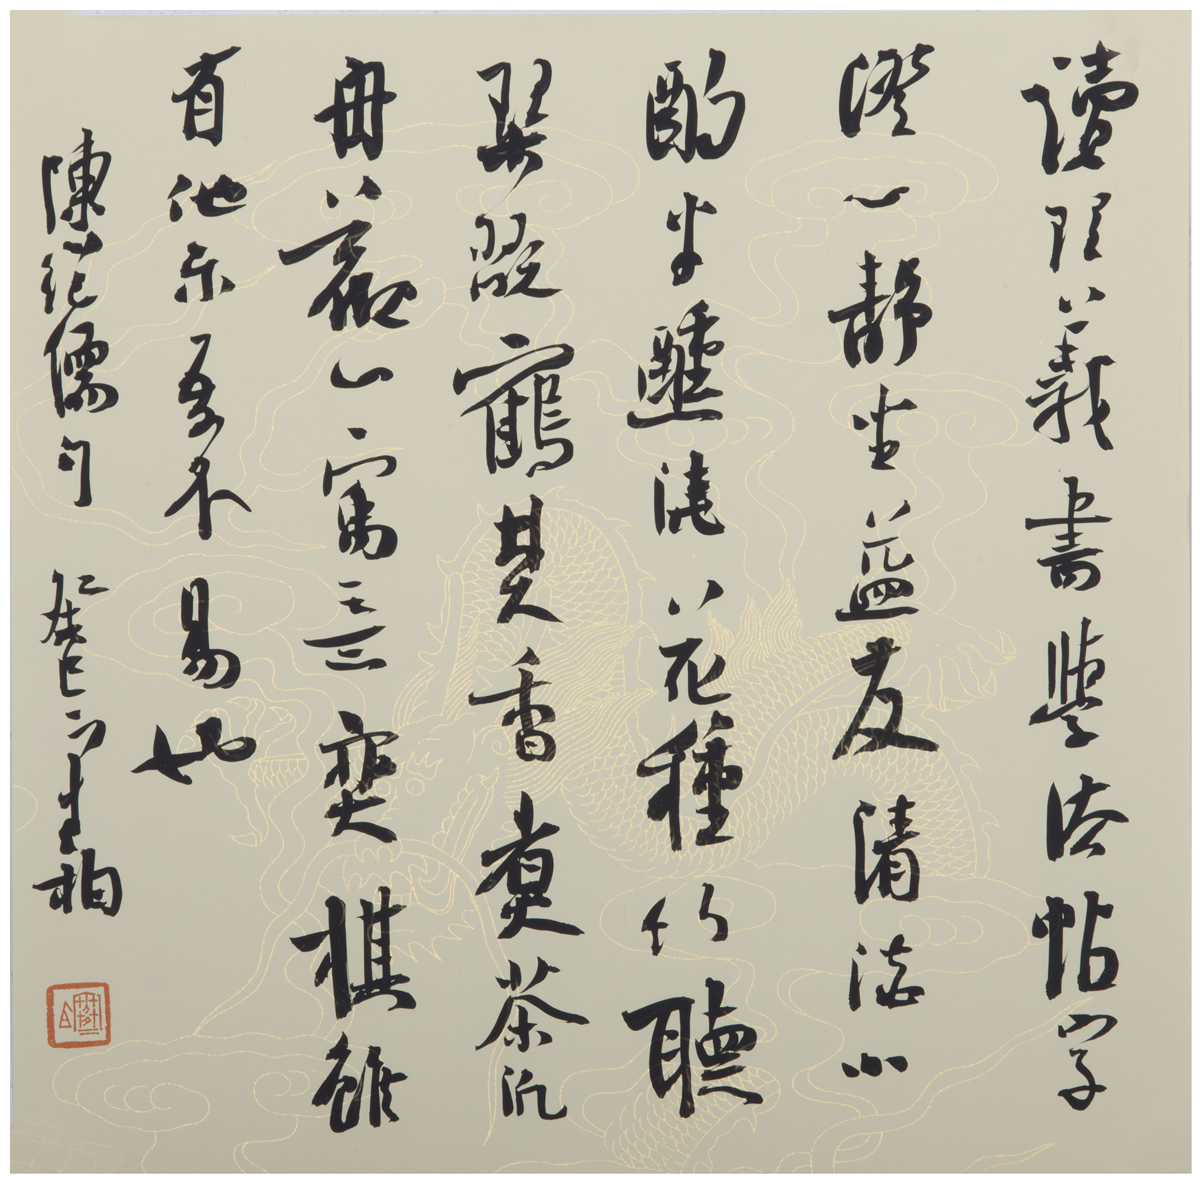 讀理義書學法帖字
澄心靜坐益友清談小
酌半醺澆花種竹聽
琴翫鶴焚香煮茶泛
舟觀山寓意奕棋雖
有他樂吾不易也
陳繼儒句 癸巳 柏